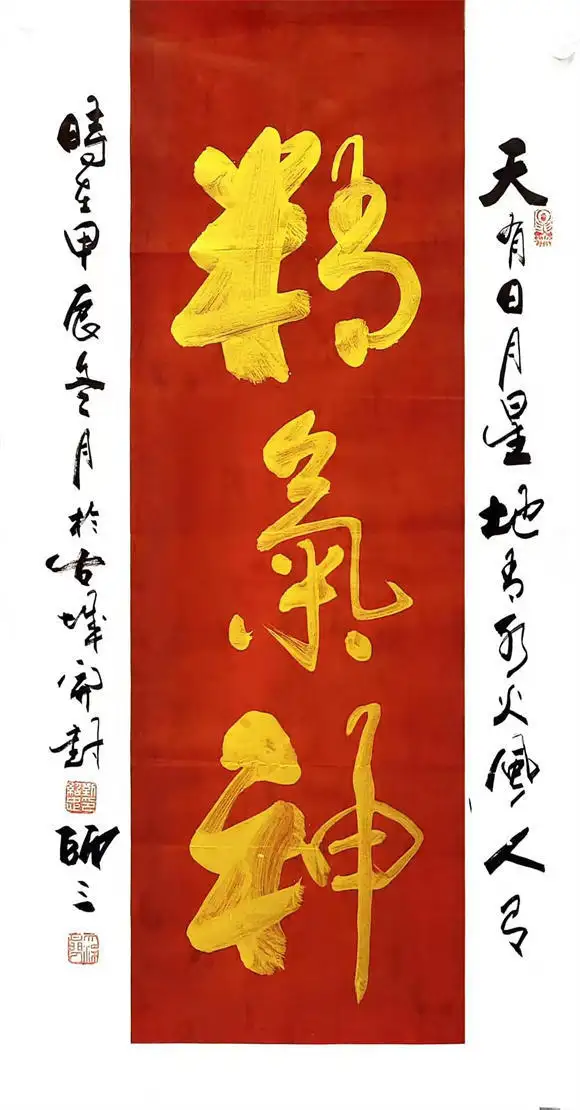 天有日月星地有水火風人有
精氣神
時在甲辰冬月於古城開封
師三